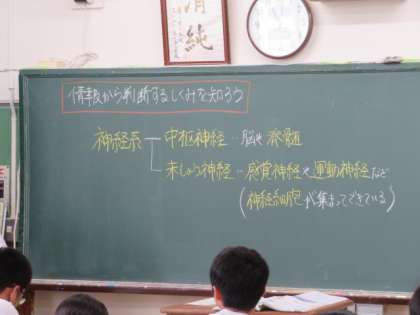 清純
情報から判断するしくみを知ろう
神経系 中枢神経‥脳や脊髄
末しょう神経‥感覚神経や運動神経など
(神経細胞が集まってできている)